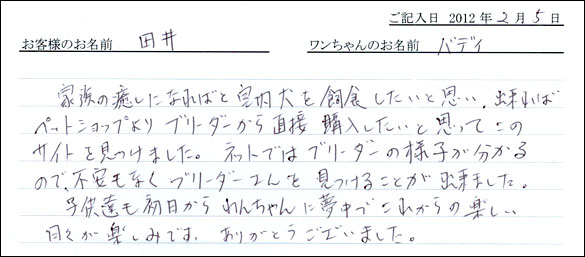 ご記入日 2012年2月5日
お客様のお名前 田井 ワンちゃんのお名前 バディ
家族の癒しになればと室内犬を飼食したいと思い、出来れば
ペットショップよりブリーダーから直接購入したいと思ってこの
サイトを見つけました。ネットではブリーダーの様子が分かる
ので、不安もなくブリーダーさんを見つけることが出来ました。
子供達も初日からわんちゃんに夢中でこれからの楽しい
日々が楽しみです。ありがとうございました。